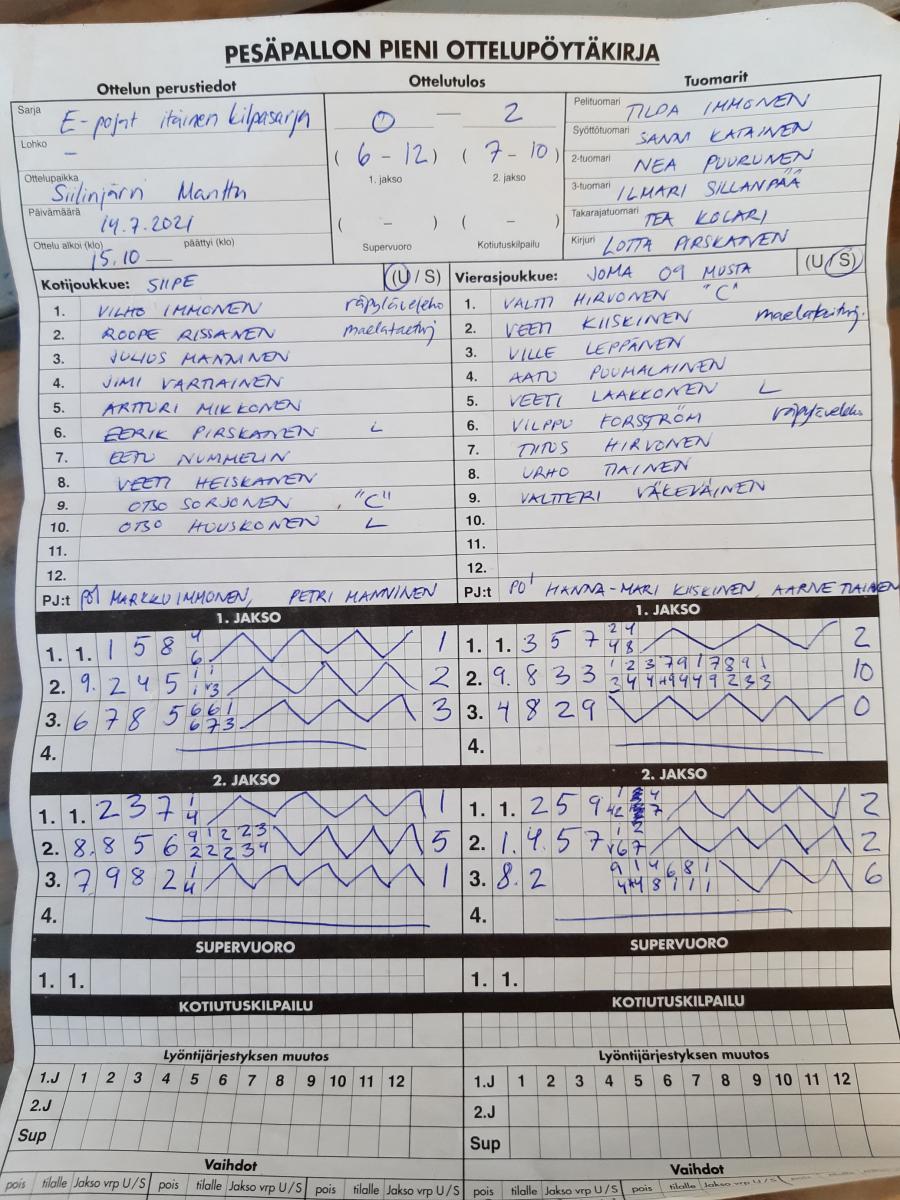 PESÄPALLON PIENI OTTELUPÖYTÄKIRJA
Ottelun perustiedot Ottelutulos Tuomarit
Sarja E-pojat itäinen kilpasarja
Lohko –
Ottelupaikka Siilinjärvi Manttu
Päivämäärä 14.7.2021
Ottelu alkoi (klo) 15.10 päättyi (klo) —
0 — 2
(6 - 12) (7 - 10)
1. jakso 2. jakso
( - ) ( - )
Supervuoro Kotiutuskilpailu
Pelituomari TILDA IMMONEN
Syöttötuomari SANNI KATAINEN
2-tuomari NEA PUURUNEN
3-tuomari ILMARI SILLANPÄÄ
Takarajatuomari TEA KOLARI
Kirjuri LOTTA PIRSKANEN
Kotijoukkue: SIIPE (U / S)
1. VILHO IMMONEN räpyläveleho
2. ROOPE RISSANEN
3. JULIUS MANNINEN
4. JIMI VARTIAINEN
5. ARTTURI MIKKONEN
6. EERIK PIRSKANEN L
7. EETU NUMMELIN
8. VEETI HEISKANEN
9. OTSO SORJONEN "C"
10. OTSO HUUSKONEN L
11.
12.
PJ:t PJ MARKKU IMMONEN, PETRI MANNINEN
Vierasjoukkue: JOMA 09 MUSTA (U / S)
1. VALTTI HIRVONEN "C"
2. VEETI KIISKINEN
3. VILLE LEPPÄNEN
4. AATU PUUMALAINEN
5. VEETI LAAKKONEN L
6. VILPPU FORSSTRÖM räpyläveleho
7. TIITUS HIRVONEN
8. URHO TIAINEN
9. VALTTERI VÄKEVÄINEN
10.
11.
12.
PJ:t PJ HANNA-MARI KIISKINEN, AARNE TIAINEN
1. JAKSO
1. 1. 1 5 8 4 6 1
2. 9. 2 4 5 2
3. 6 7 8 5 6 6 1 6 7 3 3
4.
1. JAKSO
1. 1. 3 5 7 2 4 4 8 2
2. 9. 8 3 3 10
3. 4 8 2 9 0
4.
2. JAKSO
1. 1. 2 3 7 1 4 1
2. 8. 8 5 6 9 1 2 2 3 2 2 2 3 4 5
3. 7 9 8 2 1 4 1
4.
2. JAKSO
1. 1. 2 5 9 2
2. 1. 4. 5 7 2
3. 8. 2 6
4.
SUPERVUORO SUPERVUORO
1. 1. 1. 1.
KOTIUTUSKILPAILU KOTIUTUSKILPAILU
Lyöntijärjestyksen muutos Lyöntijärjestyksen muutos
1.J 1 2 3 4 5 6 7 8 9 10 11 12 1.J 1 2 3 4 5 6 7 8 9 10 11 12
2.J 2.J
Sup Sup
Vaihdot Vaihdot
pois tilalle Jakso vrp U / S pois tilalle Jakso vrp U / S pois tilalle Jakso vrp U / S pois tilalle Jakso vrp U / S